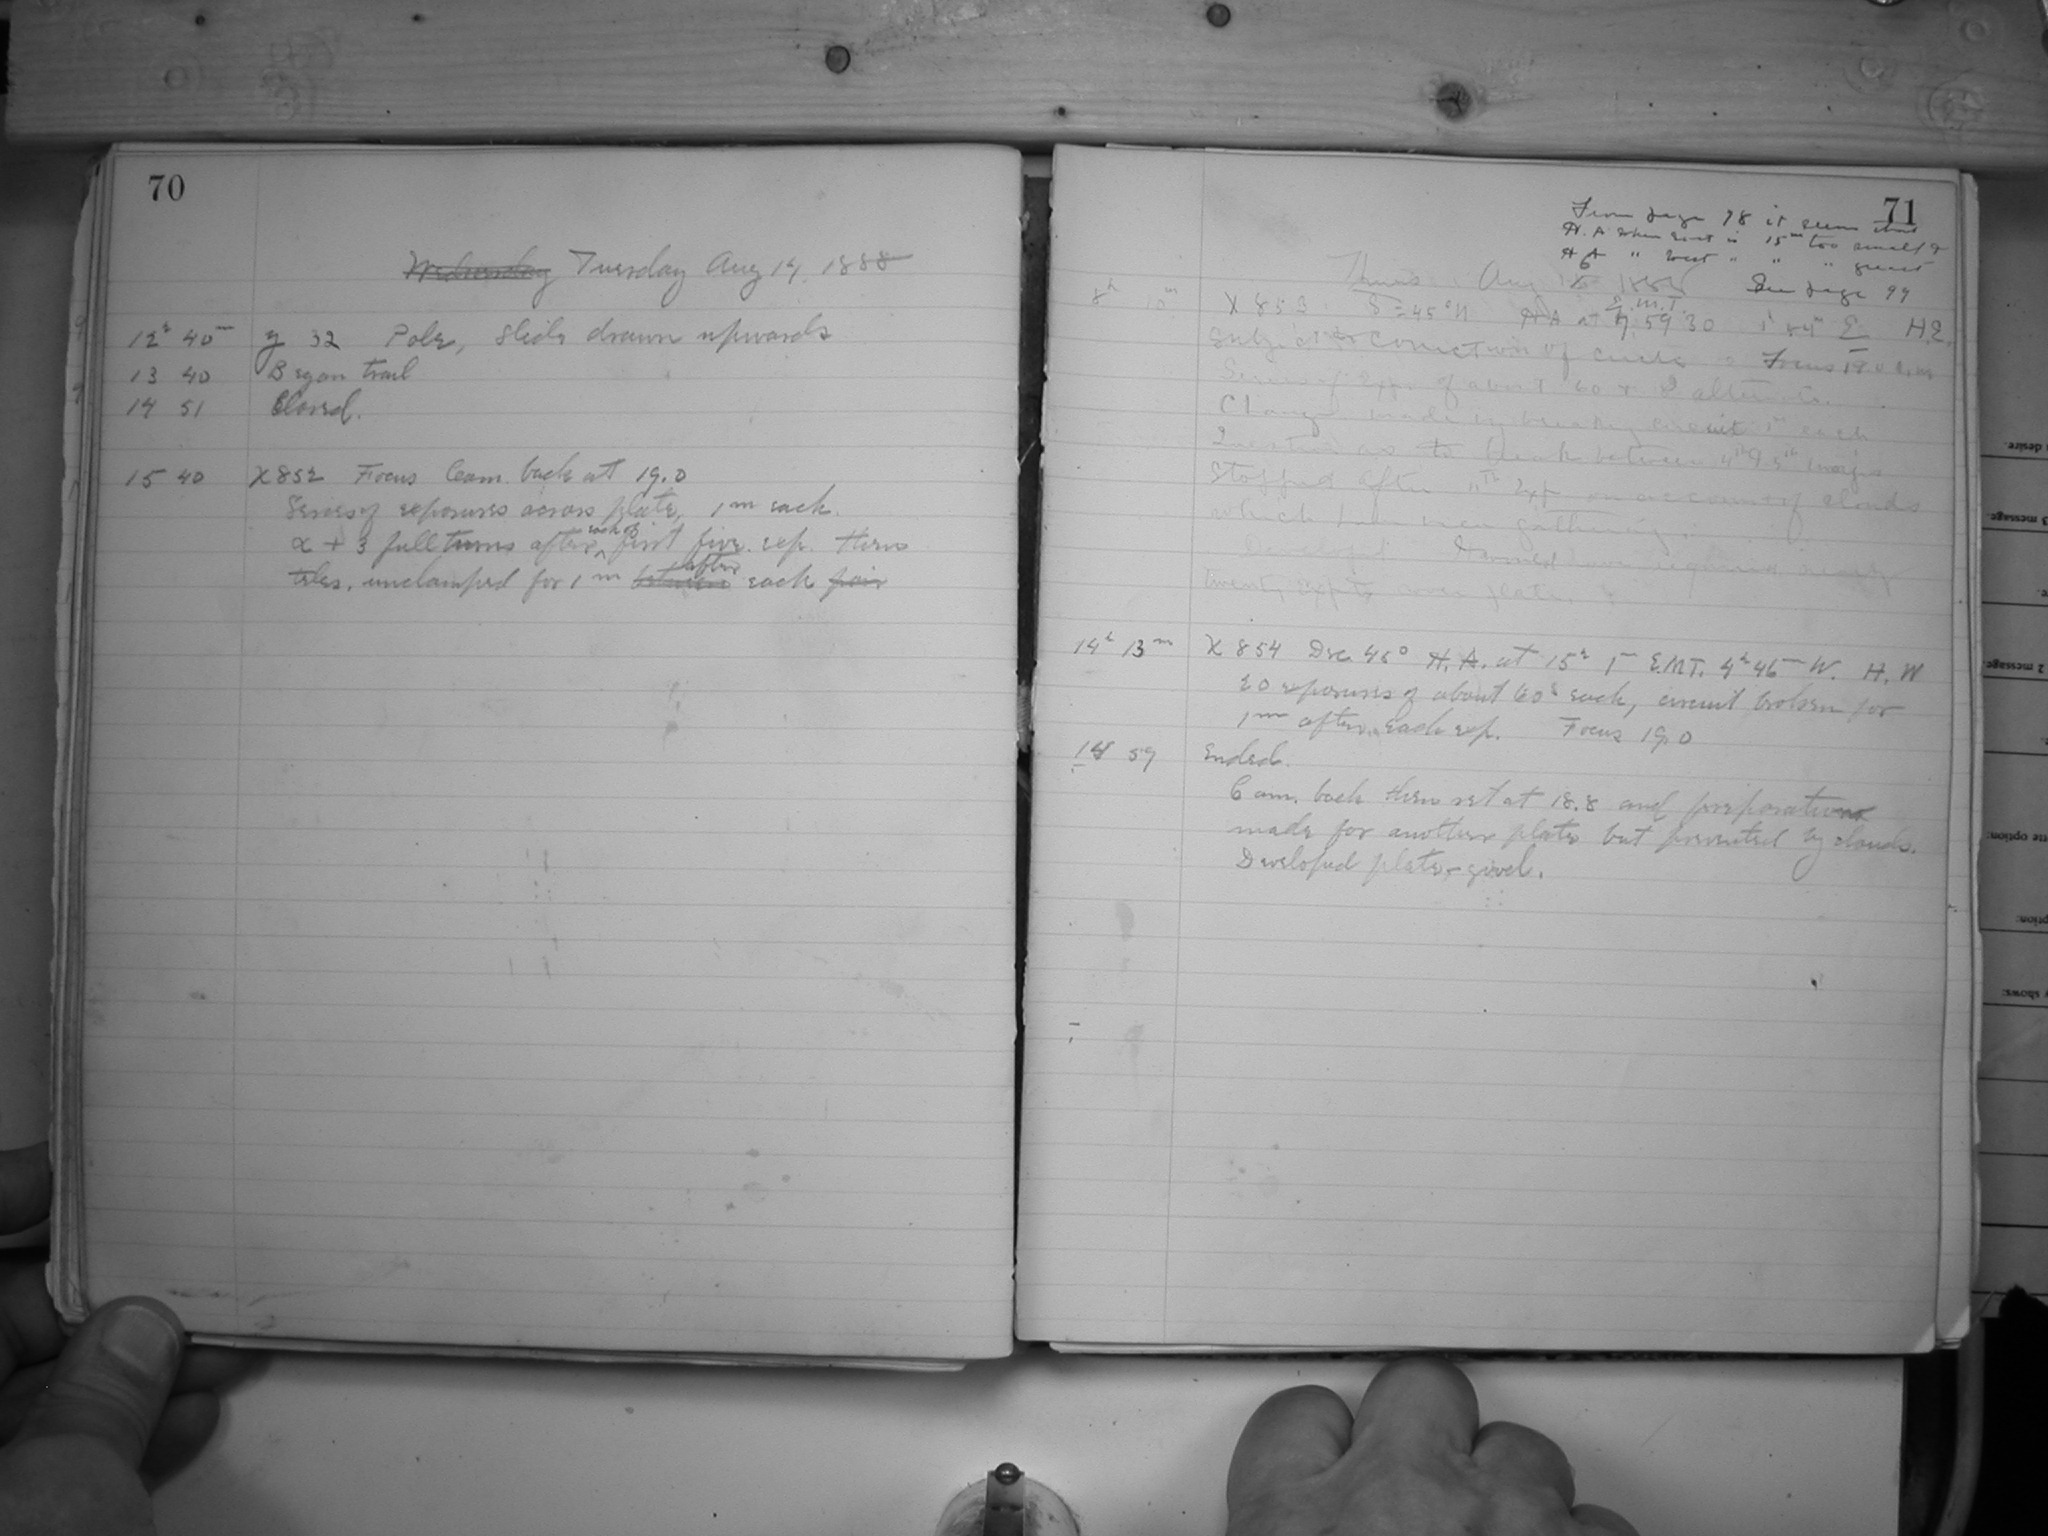 70
Wednesday Tuesday Aug 14. 1888
12h 40m y 32 Pole, slide drawn upwards
13 40 Began trail
14 51 Closed.
15 40 X852 Focus Cam. back at 19.0
Series of exposures across plate, 1m each.
α + 3 full turns after each of first five exp. then
teles. unclamped for 1m between after each pair
71
From page 78 it seems that
H.A. when East is 15m too small &
H A " West " " " great
See page 99
Thurs. Aug 1888
8h 10m X 853 δ = 45° N HA at E.M.T. 7 59 30 1h 54m E H.E.
Subject to correction of circle Focus 19.0 c.m
Series of Exps of about 60 s alternate.
Change made in breaking circuit 1m each
Question as to break between 4th & 5th images
Stopped after 11th Exp on account of clouds
which have been gathering.
Developed would have required nearly
twenty exps to cover plate.
14h 13m X 854 Dec. 45° H.A. at 15h 1m E.M.T. 4h 46m W. H. W
20 exposures of about 60s each, circuit broken for
1m after each exp. Focus 19.0
14 59 Ended.
Cam. back then set at 18.8 and preparations
made for another plate but prevented by clouds.
Developed plate, good.
desire.
3 message.
2 message.
option:
shows: